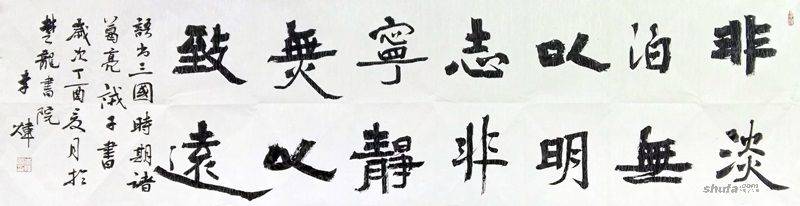 非淡
泊無
以明
志非
寧靜
無以
致遠
語出三國時期諸
葛亮誡子書
歲次丁酉夏月於
楚龍書院
李煒
shufa.com